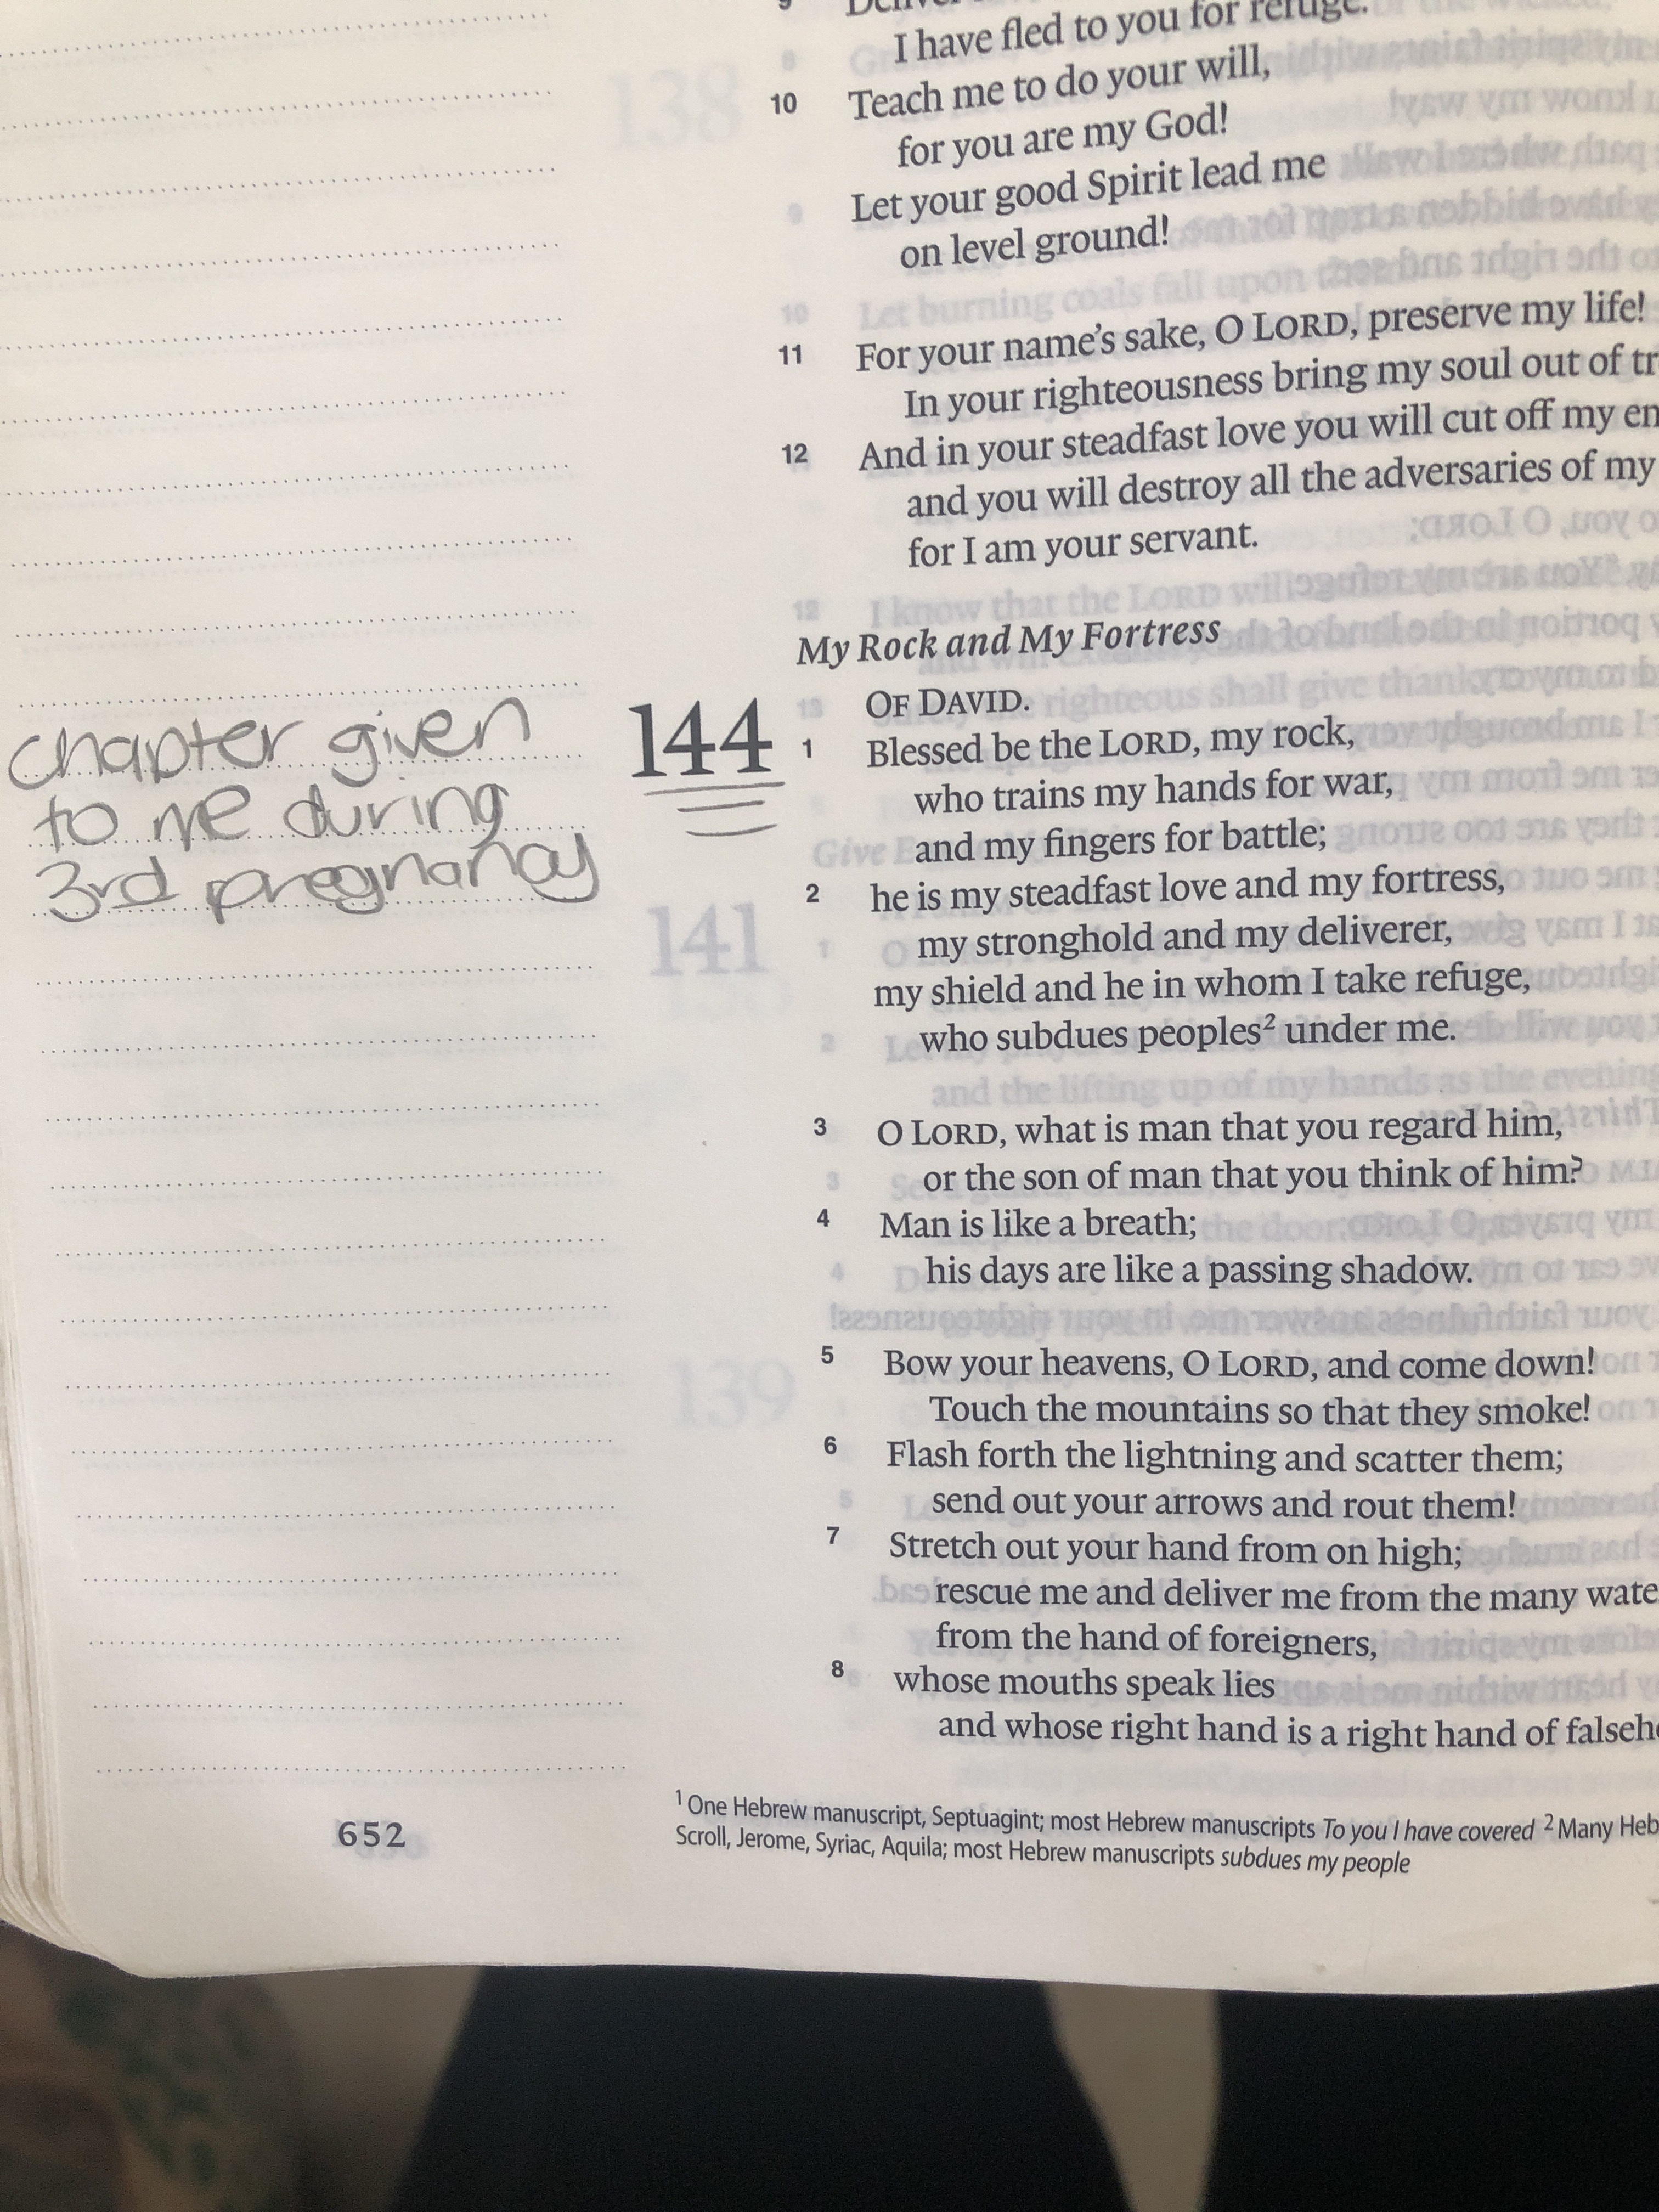 9
I have fled to you for refuge.
10 Teach me to do your will,
for you are my God!
Let your good Spirit lead me
on level ground!
11 For your name's sake, O LORD, preserve my life!
In your righteousness bring my soul out of
12 And in your steadfast love you will cut off my
and you will destroy all the adversaries of my
for I am your servant.
My Rock and My Fortress
144
OF DAVID.
1 Blessed be the LORD, my rock,
who trains my hands for war,
and my fingers for battle;
2 he is my steadfast love and my fortress,
my stronghold and my deliverer,
my shield and he in whom I take refuge,
who subdues peoples² under me.
3 O LORD, what is man that you regard him,
or the son of man that you think of him?
4 Man is like a breath;
his days are like a passing shadow.
5 Bow your heavens, O LORD, and come down!
Touch the mountains so that they smoke!
6 Flash forth the lightning and scatter them;
send out your arrows and rout them!
7 Stretch out your hand from on high;
rescue me and deliver me from the many
from the hand of foreigners,
8 whose mouths speak lies
and whose right hand is a right hand of
chapter given
to me during
3rd pregnancy
¹ One Hebrew manuscript, Septuagint; most Hebrew manuscripts To you I have covered ² Many
Scroll, Jerome, Syriac, Aquila; most Hebrew manuscripts subdues my people
652